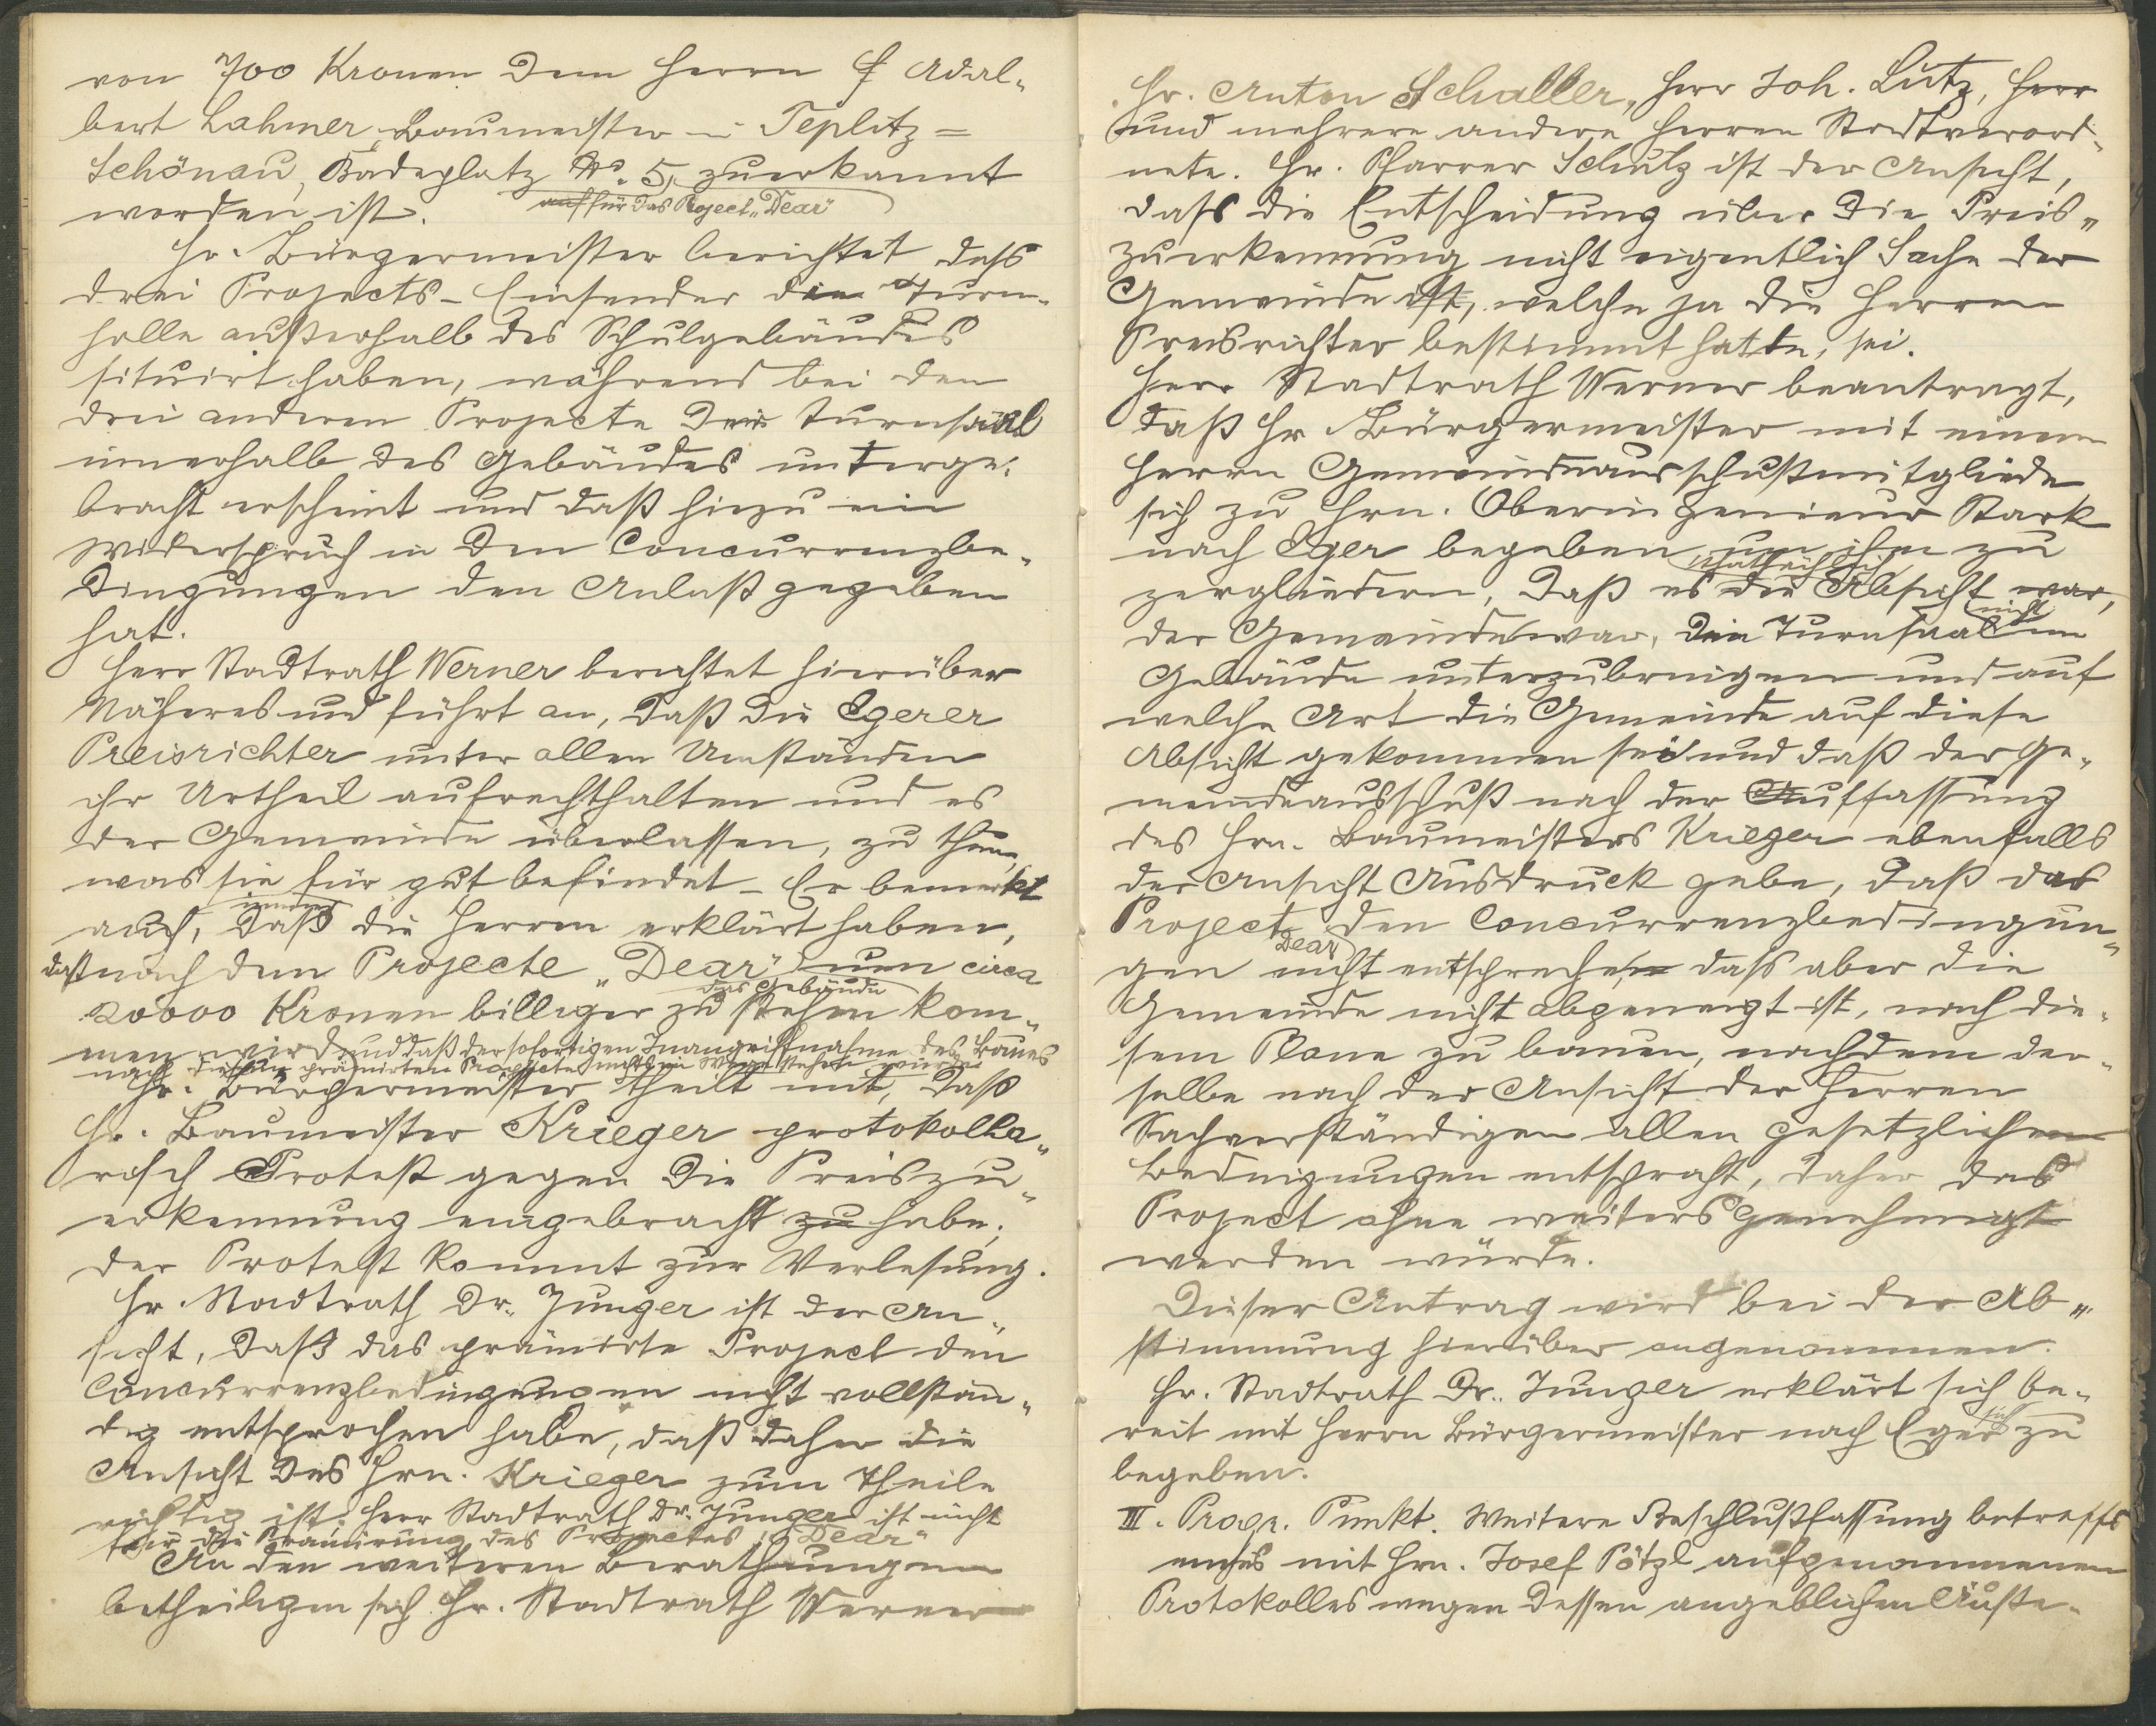 von 700 Kronen dem Herrn Adal-
bert Lahmer, Baumeister in Teplitz=
Schönau, Badeplatz Nr. 5, zuerkannt
auf für das Project „Dear"
worden ist.
Hr. Bürgermeister berichtet dass
drei Projects-Einsender die Turn-
halle außerhalb des Schulgebäudes
situirt haben, während bei den
drei anderen Projecte der Turnsaal
innerhalb des Gebäudes unterge-
bracht erscheint und daß hiezu ein
Widerspruch in den Concurrenzbe-
dingungen den Anlaß gegeben
hat.
Herr Stadtrath Werner berichtet hierüber
Näheres und führt an, daß die Egerer
Preisrichter unter allen Umständen
ihr Urtheil aufrechthalten und es
der Gemeinde überlassen, zu thun,
was sie für gut befindet – Er bemerkt
auch, daß die Herren erklärt haben,
daß nach dem Projecte „Dear" um circa
das Gebäude
20000 Kronen billiger zu stehen kom-
men wird und daß der sofortigen Inangriffnahme des Baues
nach diesem prämirten Projecte nichts im Wege stehen würde
Hr. Bürgermeister theilt mit, daß
Hr. Baumeister Krieger protokolla-
risch Protest gegen die Preiszu-
erkennung eingebracht zu habe;
der Protest kommt zur Verlesung.
Hr. Stadtrath Dr. Junger ist der An-
sicht, daß das prämirte Project den
Concurrenzbedingungen nicht vollstän-
dig entsprochen habe, daß daher die
Ansicht des Hrn. Krieger zum Theile
richtig ist. Herr Stadtrath Dr. Junger ist nicht
für die Prämirung des Projectes „Dear"
An den weiteren Berathungen
betheiligen sich Hr. Stadtrath Werner
Hr. Anton Schaller, Herr Joh. Lutz, Herr
und mehrere andere Herren Stadtverord-
nete. Hr. Pfarrer Schulz ist der Ansicht,
dass die Entscheidung über die Preis-
zuerkennung nicht eigentlich Sache der
Gemeinde ist, welche ja die Herren
Preisrichter bestimmt hatte, sei.
Herr Stadtrath Werner beantragt,
daß Hr. Bürgermeister mit einem
Herrn Gemeindeausschußmitgliede
sich zu Hrn. Oberingenieur Stark
nach Eger begeben um ihm zu
thatsächlich
zergliedern, daß es die Absicht war,
nicht
der Gemeinde war, den Turnsaal im
Gebäude unterzubringen und auf
welche Art die Gemeinde auf diese
Absicht gekommen sei und daß der Ge-
meindeausschuß nach der Auffassung
des Hrn. Baumeisters Krieger ebenfalls
der Ansicht Ausdruck gebe, daß das
Project den Concurrenzbedingun-
Dear
gen nicht entspreche, dass aber die
Gemeinde nicht abgeneigt ist, nach die-
sem Plane zu bauen, nachdem der-
selbe nach der Ansicht der Herren
Sachverständigen allen gesetzlichen
Bedingungen entspricht, daher das
Project ohne weiters genehmigt
werden würde.
Dieser Antrag wird bei der Ab-
stimmung hierüber angenommen.
Hr. Stadtrath Dr. Junger erklärt sich be-
reit mit Herrn Bürgermeister nach Eger sich zu
begeben.
III. Progr. Punkt. Weitere Beschlußfassung betreffs
eines mit Hrn. Josef Pötzl aufgenommenen
Protokolles wegen dessen angeblichen Äuße-